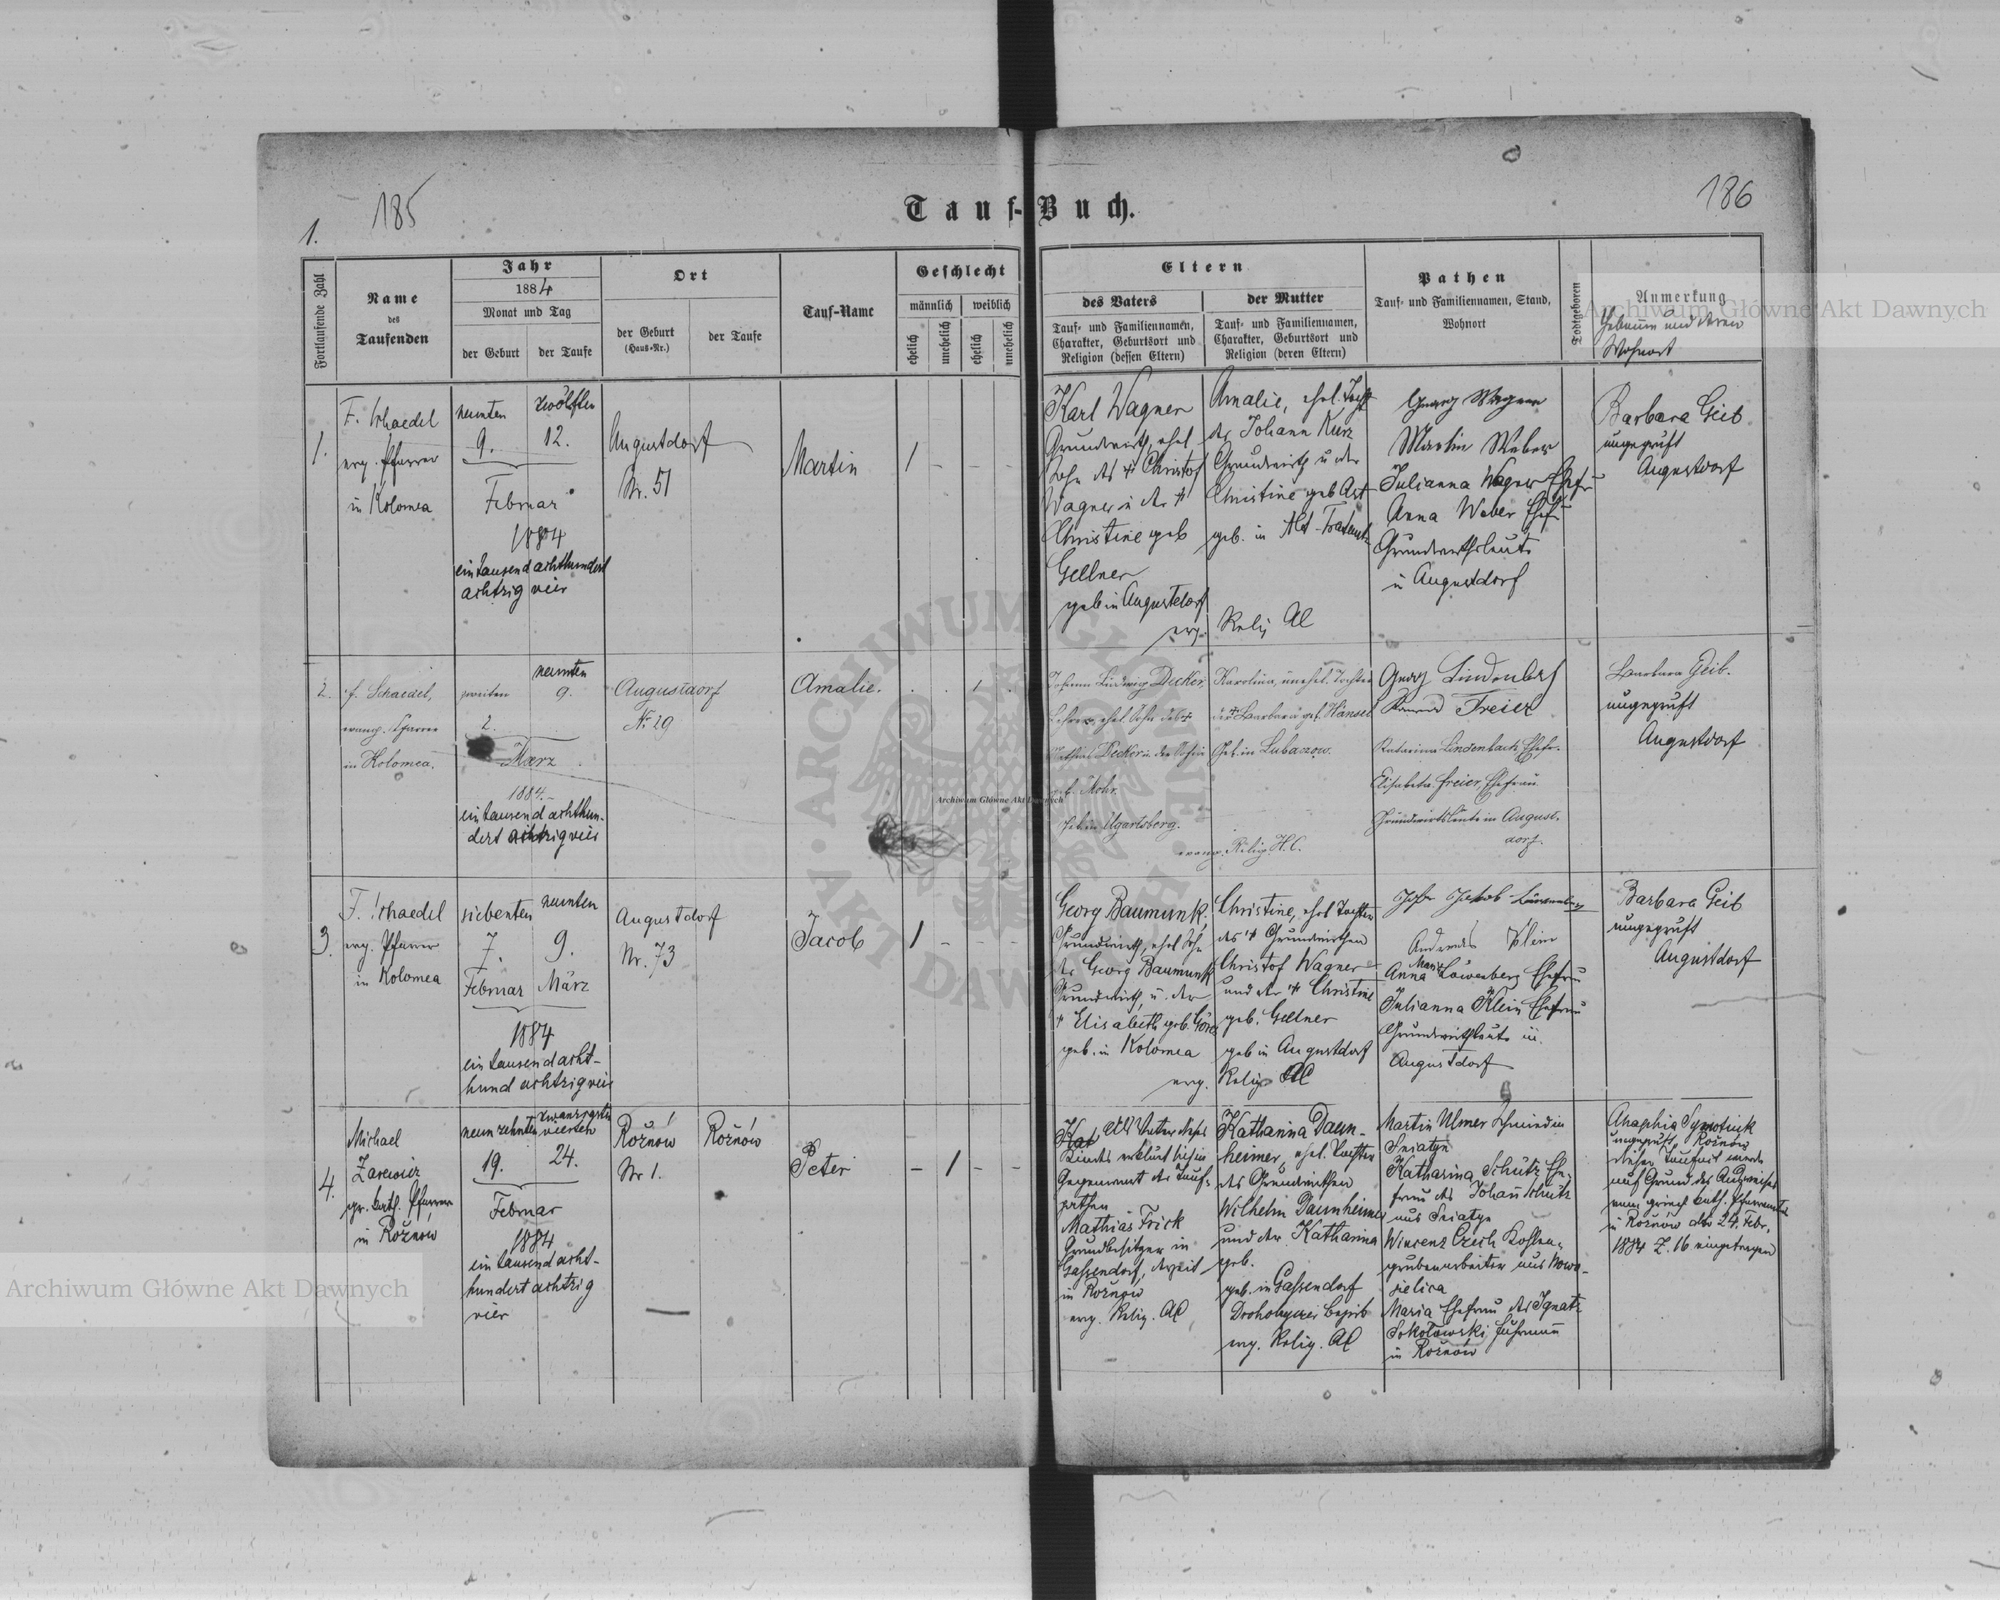 185
1.
Tauf-Buch.
186
Fortlaufende Zahl
Name
des
Taufenden
Jahr
1884
Monat und Tag
der Geburt
der Taufe
Ort
der Geburt
(Haus-Nr.)
der Taufe
Tauf-Name
Geschlecht
männlich
weiblich
ehelich
unehelich
ehelich
unehelich
Eltern
des Vaters
Tauf- und Familiennamen,
Charakter, Geburtsort und
Religion (dessen Eltern)
der Mutter
Tauf- und Familiennamen,
Charakter, Geburtsort und
Religion (deren Eltern)
Pathen
Tauf- und Familiennamen, Stand,
Wohnort
Todtgeboren
Anmerkung
Hebamme und deren
Wohnort
1.
F. Schaedel
evg. Pfarrer
in Kolomea
neunten
9.
zwölften
12.
Februar
1884
ein tausend achthundert
achtzig vier
Augustdorf
Nr. 51
Martin
1 – – –
Karl Wagner
Grundwirth, ehel
Sohn des † Christof
Wagner u der †
Christine geb
Gellner
geb in Augustdorf
evg.
Amalie, ehel. Tocht
des Johann Kurz
Grundwirth u der
Christine geb
geb. in Alt-
Relig AC
Georg Wagner
Martin Weber
Julianna Wagner Ehefr
Anna Weber Ehef
Grundwirthsleute
in Augustdorf
Barbara Geib
ungeprüft
Augustdorf
2.
F. Schaedel,
evang. Pfarrer
in Kolomea.
zweiten
2.
neunten
9.
März
1884.
ein tausend achthun-
dert achtzig vier
Augustdorf
Nr 29
Amalie.
. . 1 .
Johann Ludwig Decker,
Lehrer, ehel. Sohn des †
Decker u. der
geb. Mohr.
Geb. in Ugartsberg.
evang.
Karolina, unehel. Tochter
der † Barbara geb. Hänsel
Geb. in Lubaczow.
Relig. H.C.
Georg Lindenbach
Freier
Katarina Lindenbach, Ehefr.
Elisabeta Freier, Ehefrau
Grundwirtsleute in August-
dorf.
Barbara Geib.
ungeprüft
Augustdorf
3.
F. Schaedel
evg. Pfarrer
in Kolomea
siebenten
7.
Februar
neunten
9.
März
1884
ein tausend acht-
hund achtzig vier
Augustdorf
Nr. 73
Jacob
1 – – –
Georg Baumunk,
Grundwirth, ehel Sohn
des Georg Baumunk
Grundwirth, u. der
† Elisabeth geb.
geb. in Kolomea
evg.
Christine, ehel Tochter
des † Grundwirthen
Christof Wagner
und der † Christine
geb. Gellner
geb in Augustdorf
Relig AC
Jakob
Andreas Klein
Anna Maria Löwenberg Ehefrau
Julianna Klein Ehefrau
Grundwirthsleute in
Augustdorf
Barbara Geib
ungeprüft
Augustdorf
4.
Michael
Zarewicz
gr. kath. Pfarrer
in Rożnów
neunzehnten
19.
zwanzigsten
vierten
24.
Februar
1884
ein tausend acht-
hundert achtzig
vier
Rożnów
Nr 1.
Rożnów
Peter
– 1 – –
Als Vater dieses
Kindes erklärt sich in
Gegenwart der Tauf-
pathen
Mathias Frick
Grundbesitzer in
Gassendorf, derzeit
in Rożnów
evg. Relig. AC
Katharina Daum-
heimer, ehel. Tochter
des Grundwirthen
Wilhelm Daumheimer
und der Katharina
geb.
geb. in Gassendorf
Drohobyczer Bezirk
evg. Relig. AC
Martin Ulmer Schmied in
Sniatyn
Katharina Schütz Ehe-
frau des Johann Schütz
aus Sniatyn
Wincenz Czech Kohlen-
grubenarbeiter aus Nowo-
sielica
Maria Ehefrau des Ignatz
Sokołowski, Fuhrmann
in Rożnów
ungeprüft Rożnów
dieser Taufact wurde
auf Grund des Ausweises
vom griech kath. Pfarramte
in Rożnów dto 24. Febr.
1884 Z. 16 eingetragen
Archiwum Główne Akt Dawnych
Archiwum Główne Akt Dawnych
Archiwum Główne Akt Dawnych
ARCHIWUM GŁÓWNE · AKT DAWNYCH ·